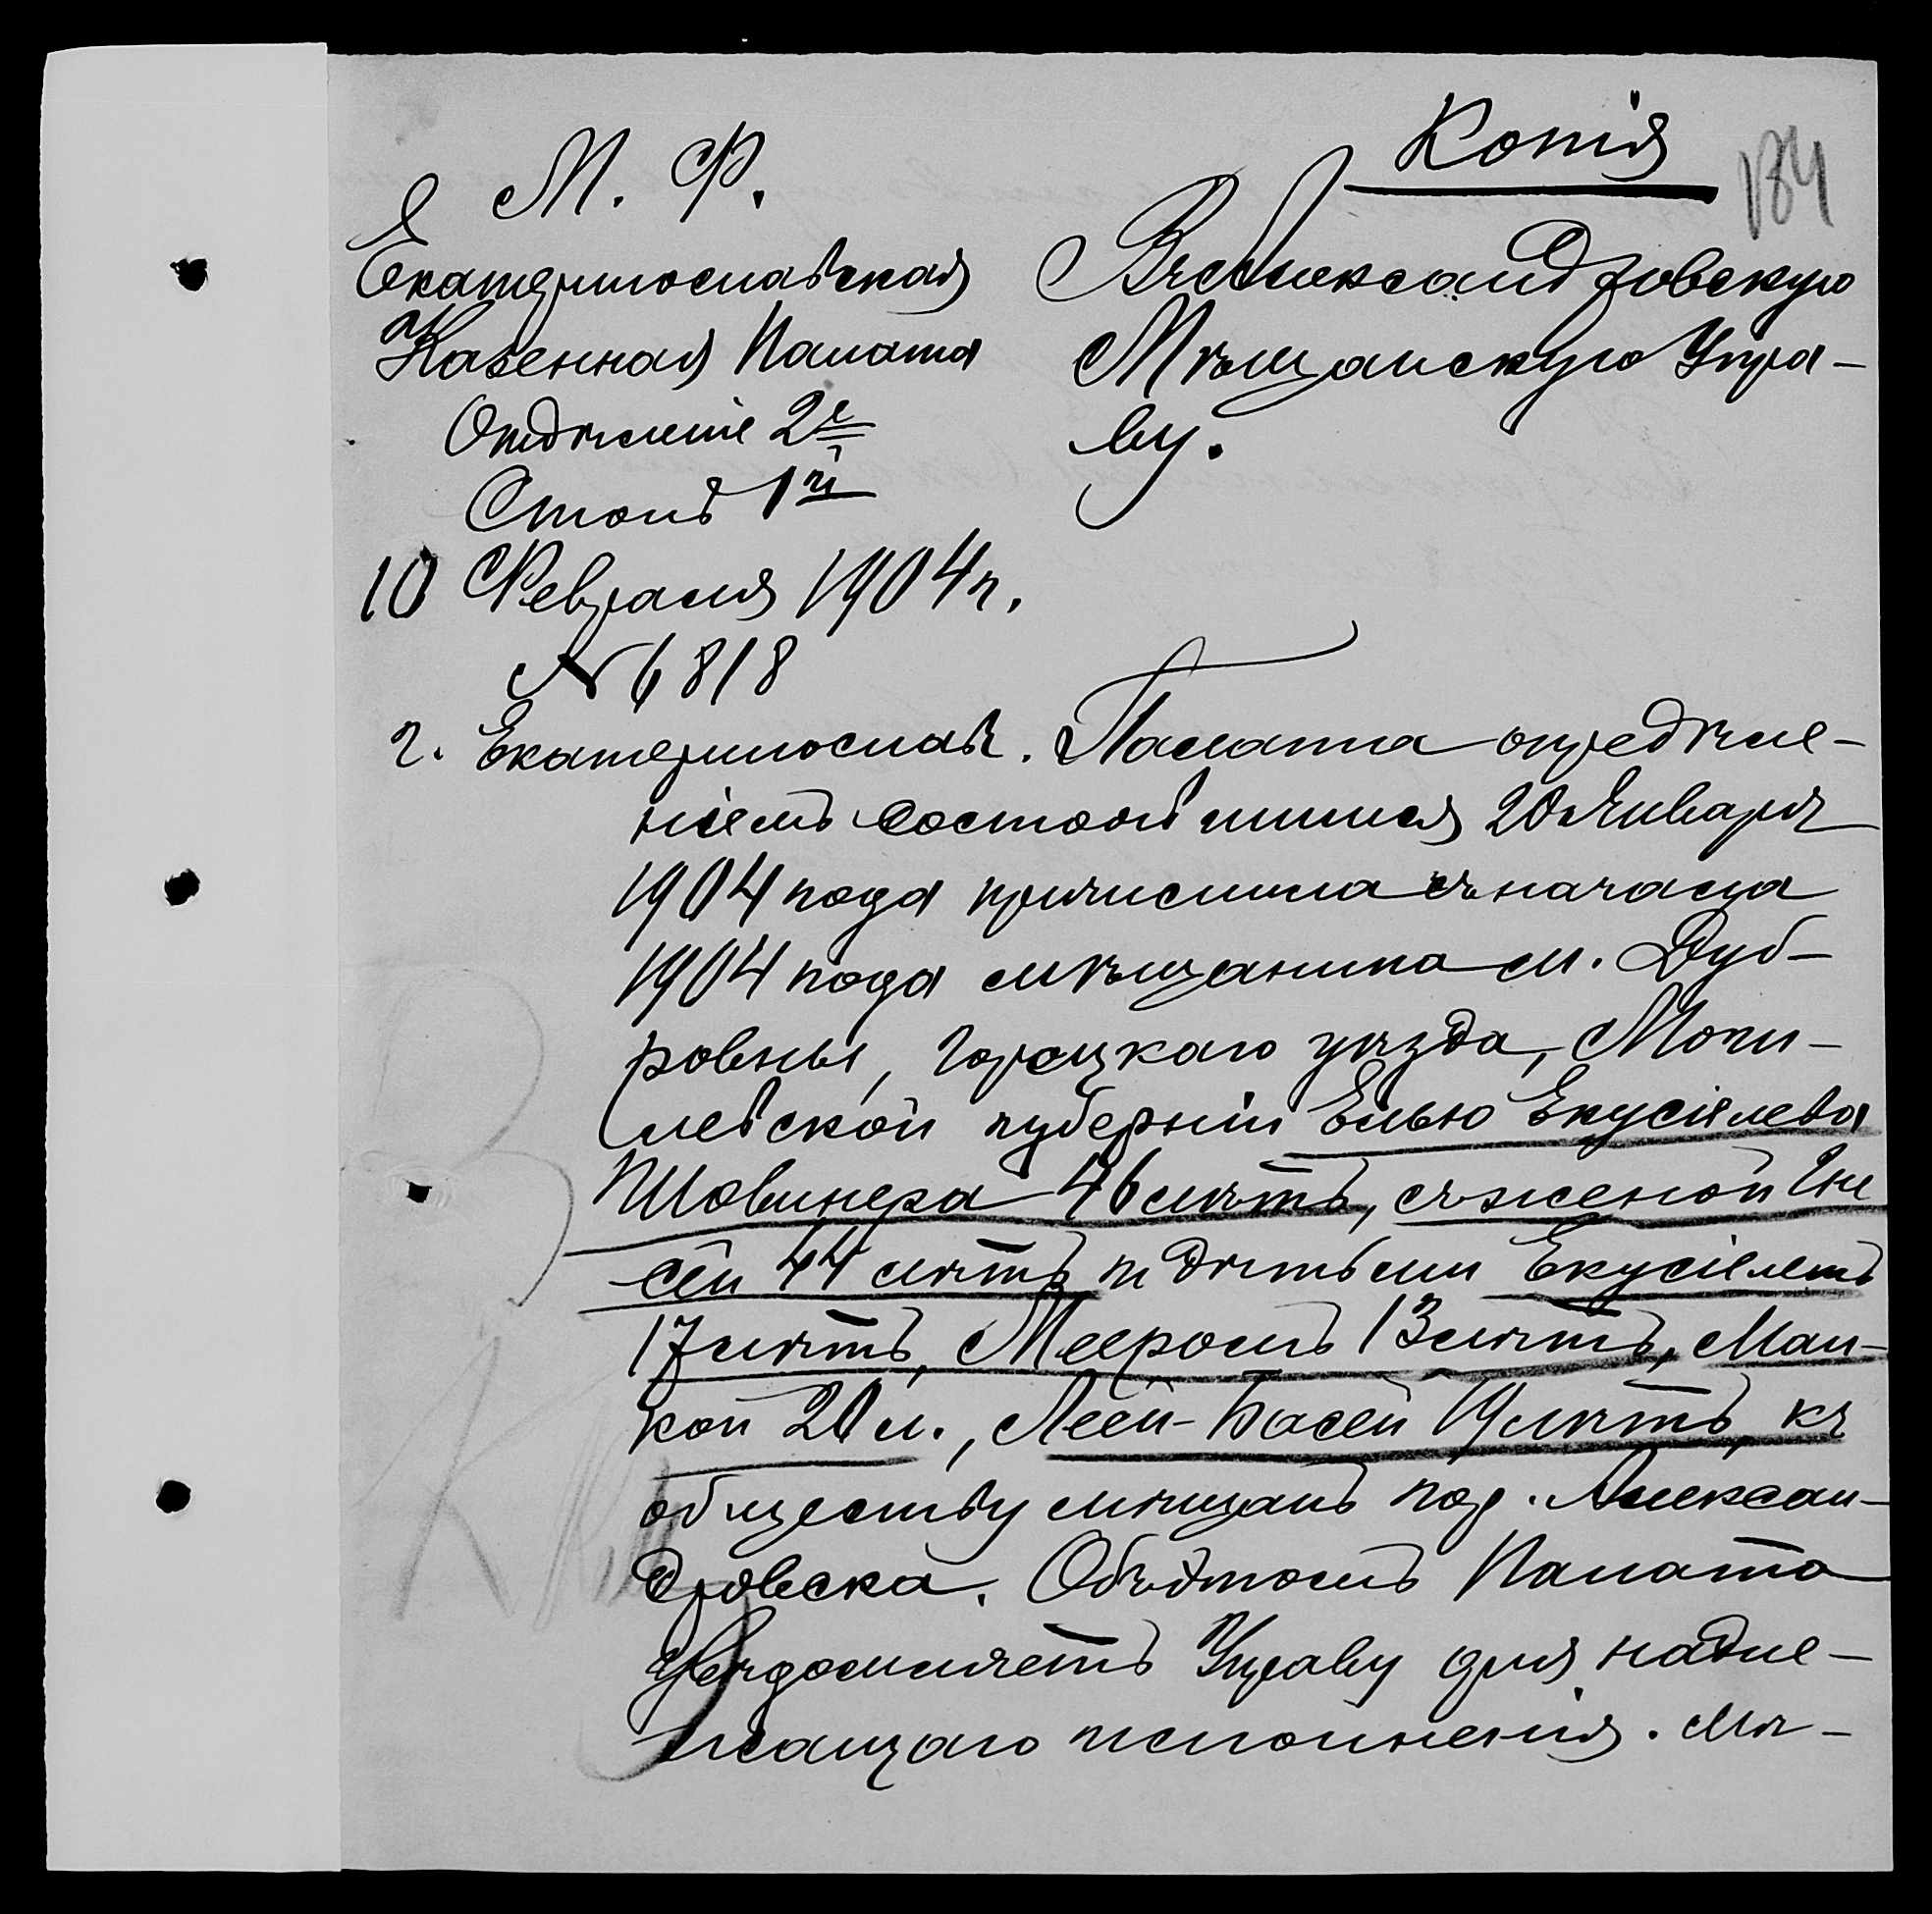 Копія
184
М. Ф.
Екатеринославская
Казенная Палата
Отдѣленіе 2е
Столъ 1й
10 Февраля 1904 г.
№ 6818
г. Екатеринославъ.
Въ Александровскую
Мѣщанскую Упра-
ву.
Палата опредѣле-
ніемъ состоявшимся 20 Января
1904 года причислила съ начала
1904 года мѣщанина м. Дуб-
ровны, Горецкаго уѣзда, Моги-
левской губерніи Елью Екусіелева
Шовинера 46 лѣтъ, съ женой Гне
сей 44 лѣтъ и дѣтьми Екусіелемъ
17 лѣтъ, Мееромъ 13 лѣтъ, Ман-
кой 20 л., Леей-Басей 19 лѣтъ, къ
обществу мѣщанъ гор. Алексан-
дровска. Объ этомъ Палата
увѣдомляетъ Управу для надле-
жащаго исполненія. Мѣ-